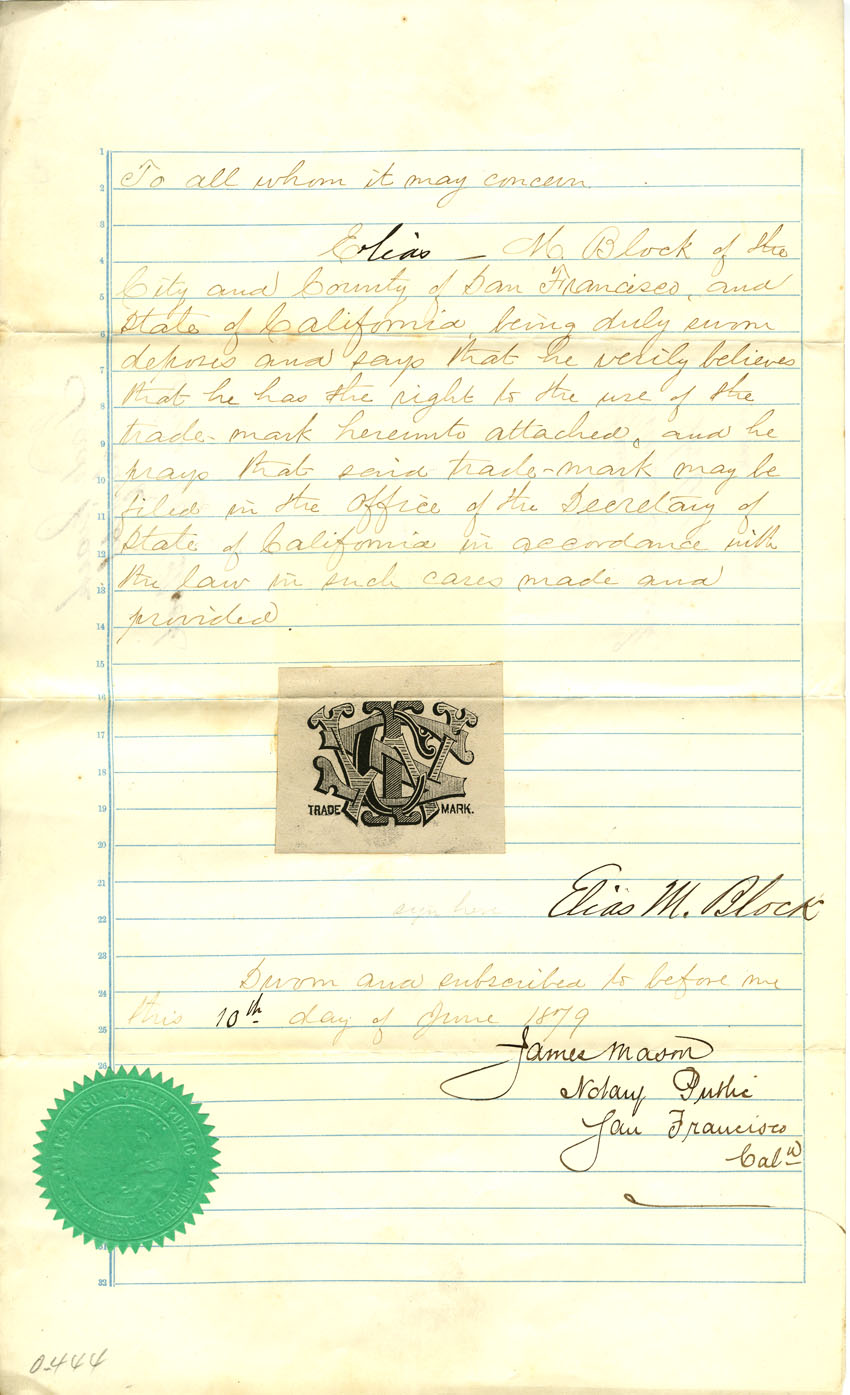 To all whom it may concern
Elias – M. Block of the
City and County of San Francisco, and
State of California, being duly sworn
deposes and says that he verily believes
that he has the right to the use of the
trade-mark hereunto attached, and he
prays that said trade-mark may be
filed in the office of the Secretary of
State of California in accordance with
the law in such cases made and
provided.
TRADE MARK.
sign here Elias M. Block
Sworn and subscribed to before me
this 10th day of June 1879
James Mason
Notary Public
San Francisco
Caln
0-444